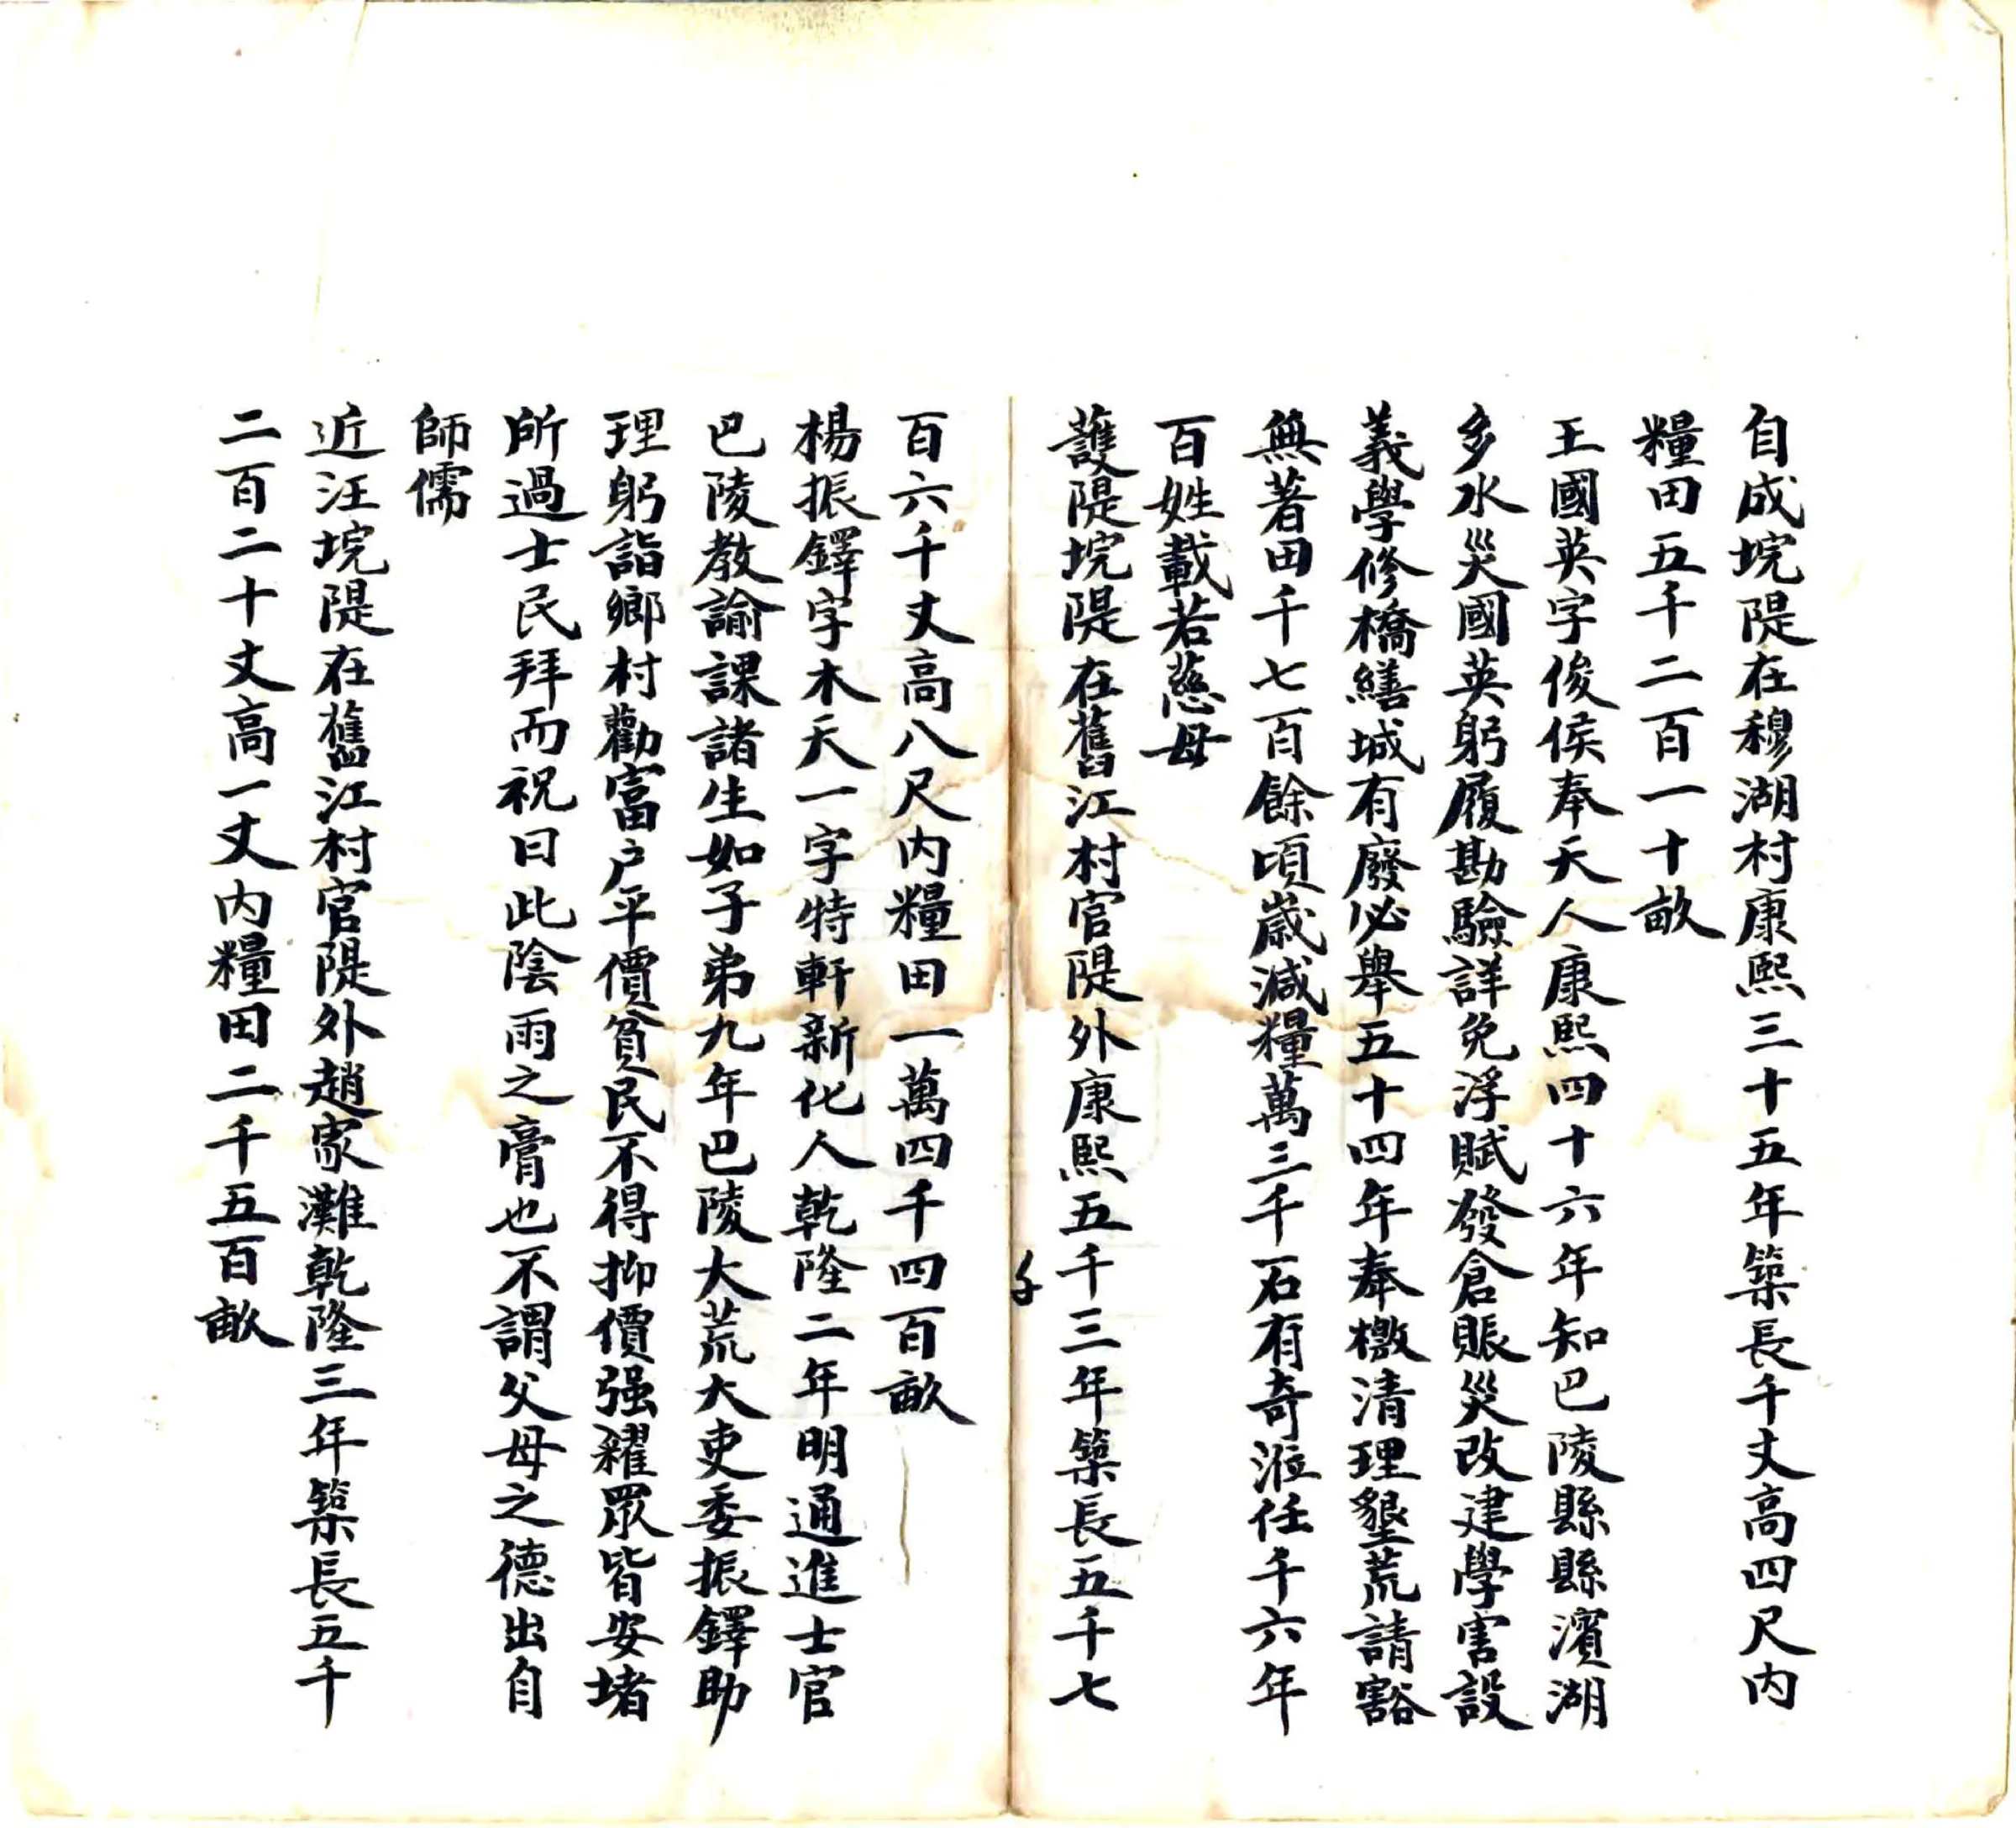 自成垸隄在穆湖村康熙三十五年築長千丈高四尺内
糧田五千二百一十畝
王國英字俊侯奉天人康熙四十六年知巴陵縣縣濱湖
多水災國英躬履勘驗詳免浮賦發倉賬災改建學害設
義學修橋繕城有廢必舉五十四年奉檄清理墾荒請豁
無著田千七百餘頃歲減糧萬三千一石有奇涖任千六年
百姓載若慈母
護隄垸隄在舊江村官隄外康熙五千三年築長五千七
千
百六千丈高八尺内糧田一萬四千四百畝
楊振鐸字木天一字特軒新化人乾隆二年明通進士官
巴陵教諭課諸生如子弟九年巴陵大荒大吏委振鐸助
理躬詣鄉村勸富户平價貧民不得抑價强糴眾皆安堵
所過士民拜而祝曰此陰雨之膏也不謂父母之德出自
師儒
近汪垸隄在舊江村官隄外趙家灘乾隆三年築長五千
二百二十丈高一丈内糧田二千五百畝